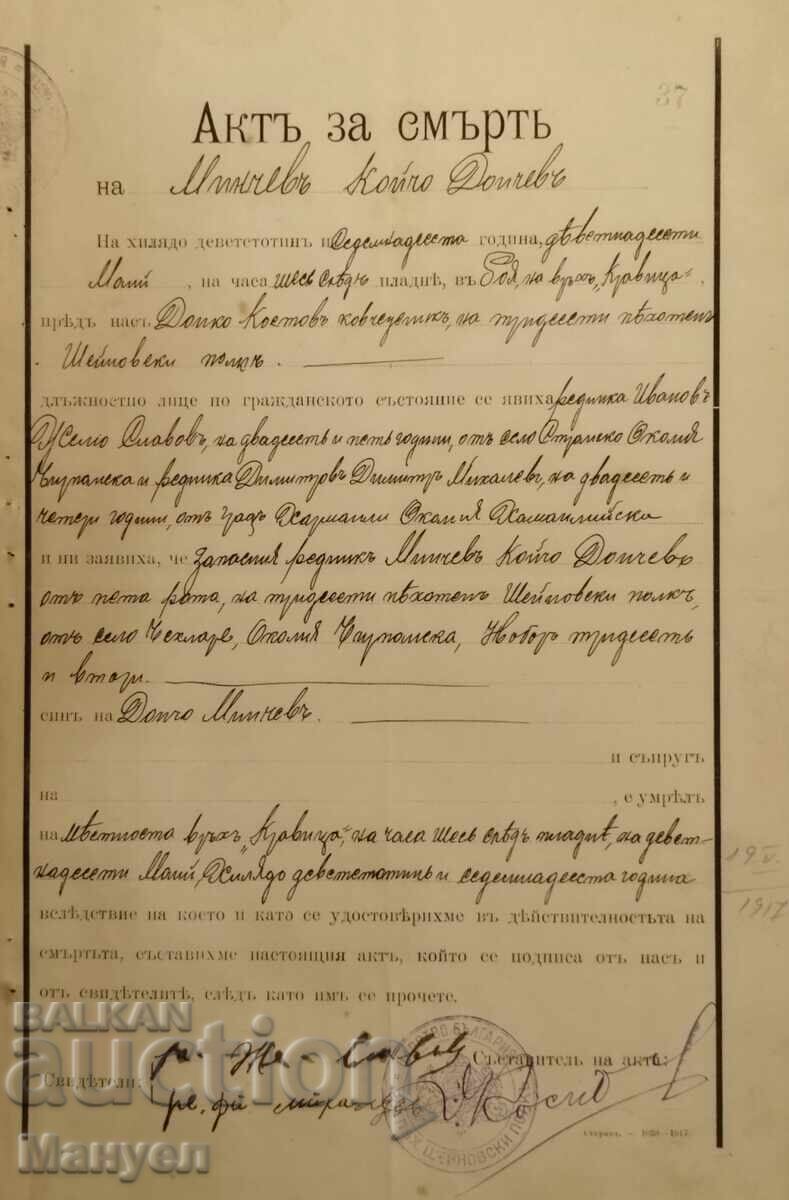 37
Актъ за смърть
на Минчевъ Койчо Дончевъ
На хилядо деветстотинъ и Седемнадесета година, деветнадесети
Май, на часа шесь следъ пладне, въ Боя, на връхъ „Кравица“,
предъ насъ Донко Костовъ ковчежникъ, на тридесети пехотенъ
Шейновски полкъ.
длъжностно лице по гражданското състояние се явиха редника Ивановъ
Желю Славовъ, на двадесеть и петь години, отъ село Странско Околия
Чирпанска и редника Димитровъ Димитръ Михалевъ, на двадесеть и
четери години, отъ градъ Харманли Околия Хаманлийска
и ни заявиха, че Запасния редникъ Минчевъ Койчо Дончевъ
отъ пета рота, на тридесети пѣхотенъ Шейновски полкъ,
отъ село Чехларе, Околия Чирпанска, Наборъ тридесеть
и втори.
синъ на Дончо Минчевъ.
и съпругъ
на , е умрѣлъ
на мѣстноста връхъ „Кравица“, на часа шесь следъ пладнѣ, на девет-
надесети Май, Хилядо деветстотинъ и седемнадесета година
вслѣдствие на което и като се удостовѣрихме въ дѣйствителностьта на
смъртьта, съставихме настоящия актъ, който се подписа отъ насъ и
отъ свидѣтелитѣ, слѣдъ като имъ се прочете.
19 V
1917
Съставитель на акта:
Свидѣтели:
BALKAN
auction
Мануел